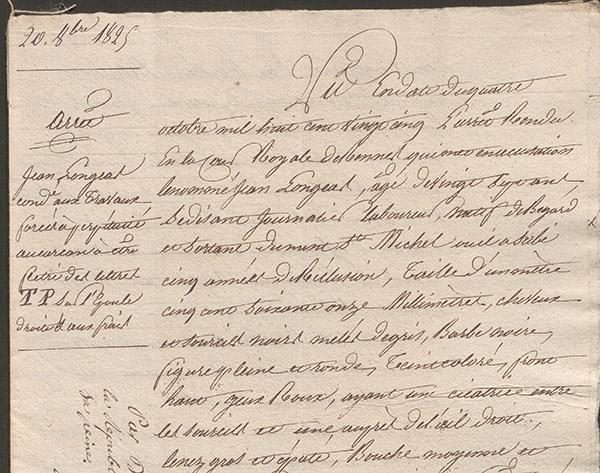 20. 8bre 1825
arrêt
Jean Longeat
condé. aux travaux
forcés à perpétuité
au carcan à être
flétri des lettres
T P sur l'épaule
droite & aux frais
Vu
En date du quatre
octobre mil huit cent vingt cinq L'arrêt Rendu
En la Cour Royale de Rennes, qui met en accusation
le nommé Jean Longeat, agé de vingt sept ans,
Se disant Journalier laboureur, natif de Begard
et Sortant du mont St. Michel où il a subi
cinq années de Réclusion, Taille d'un mètre
cinq cent soixante onze Millimètres, cheveux
et sourcils noirs melés de gris, Barbe noire,
figure pleine et ronde, Teint coloré, front
haut, yeux Roux, ayant une cicatrice entre
les sourcils et une auprès de l'œil Droit,
le nez gros et épaté, Bouche moyenne et
Par
la